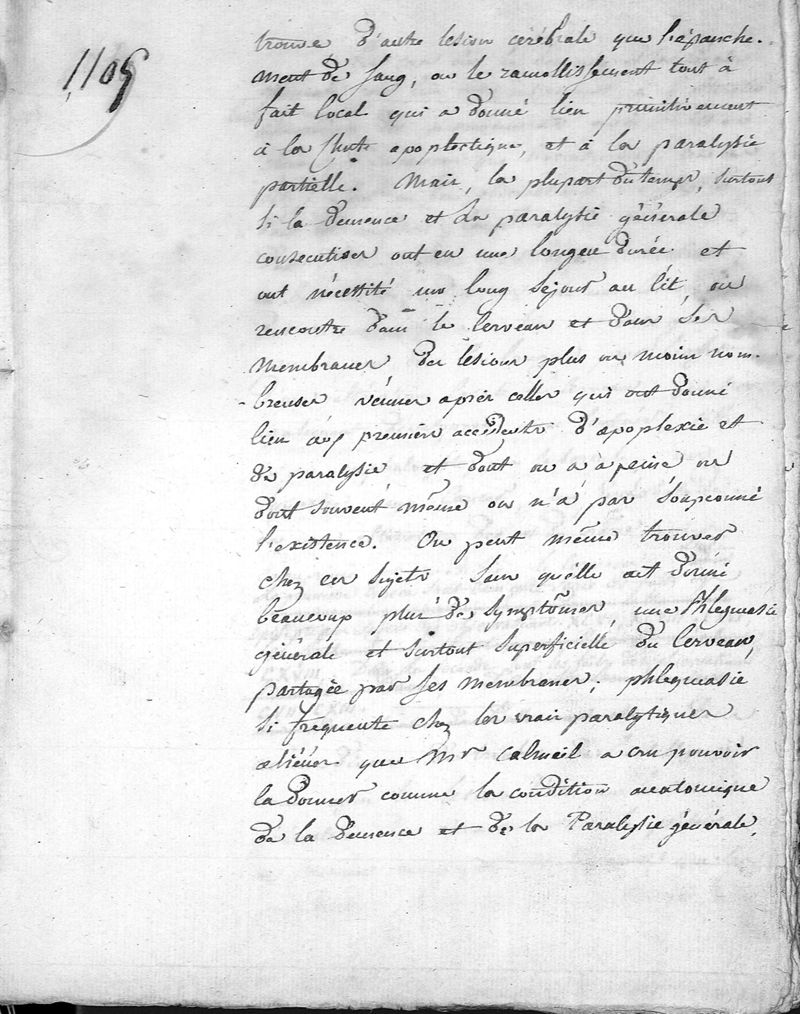 1105
trouve d'autre lesion cérébrale que l'épanche-
ment de sang, ou le ramollissement tout à
fait local qui a donné lieu primitivement
à la chute apoplectique, et à la paralysie
partielle. Mais, la plupart du temps, surtout
si la demence et la paralysie générale
consecutives ont eu une longue durée et
ont nécessité un long séjour au lit, on
rencontre dans le cerveau et dans ses
membranes des lesions plus ou moins nom-
breuses venues après celles qui ont donné
lieu aux premiers accidents d'apoplexie et
de paralysie et dont on a à peine ou
dont souvent même on n'a pas soupconné
l'existence. On peut même trouver
chez ces sujets sans qu'elle ait donné
beaucoup plus de symptômes, une Phlegmasie
générale et surtout superficielle du cerveau,
partagée par ses membranes; phlegmasie
si frequente chez les vrais paralytiques
aliénés que Mr Calmeil a cru pouvoir
la donner comme la condition anatomique
de la demence et de la Paralysie générale.